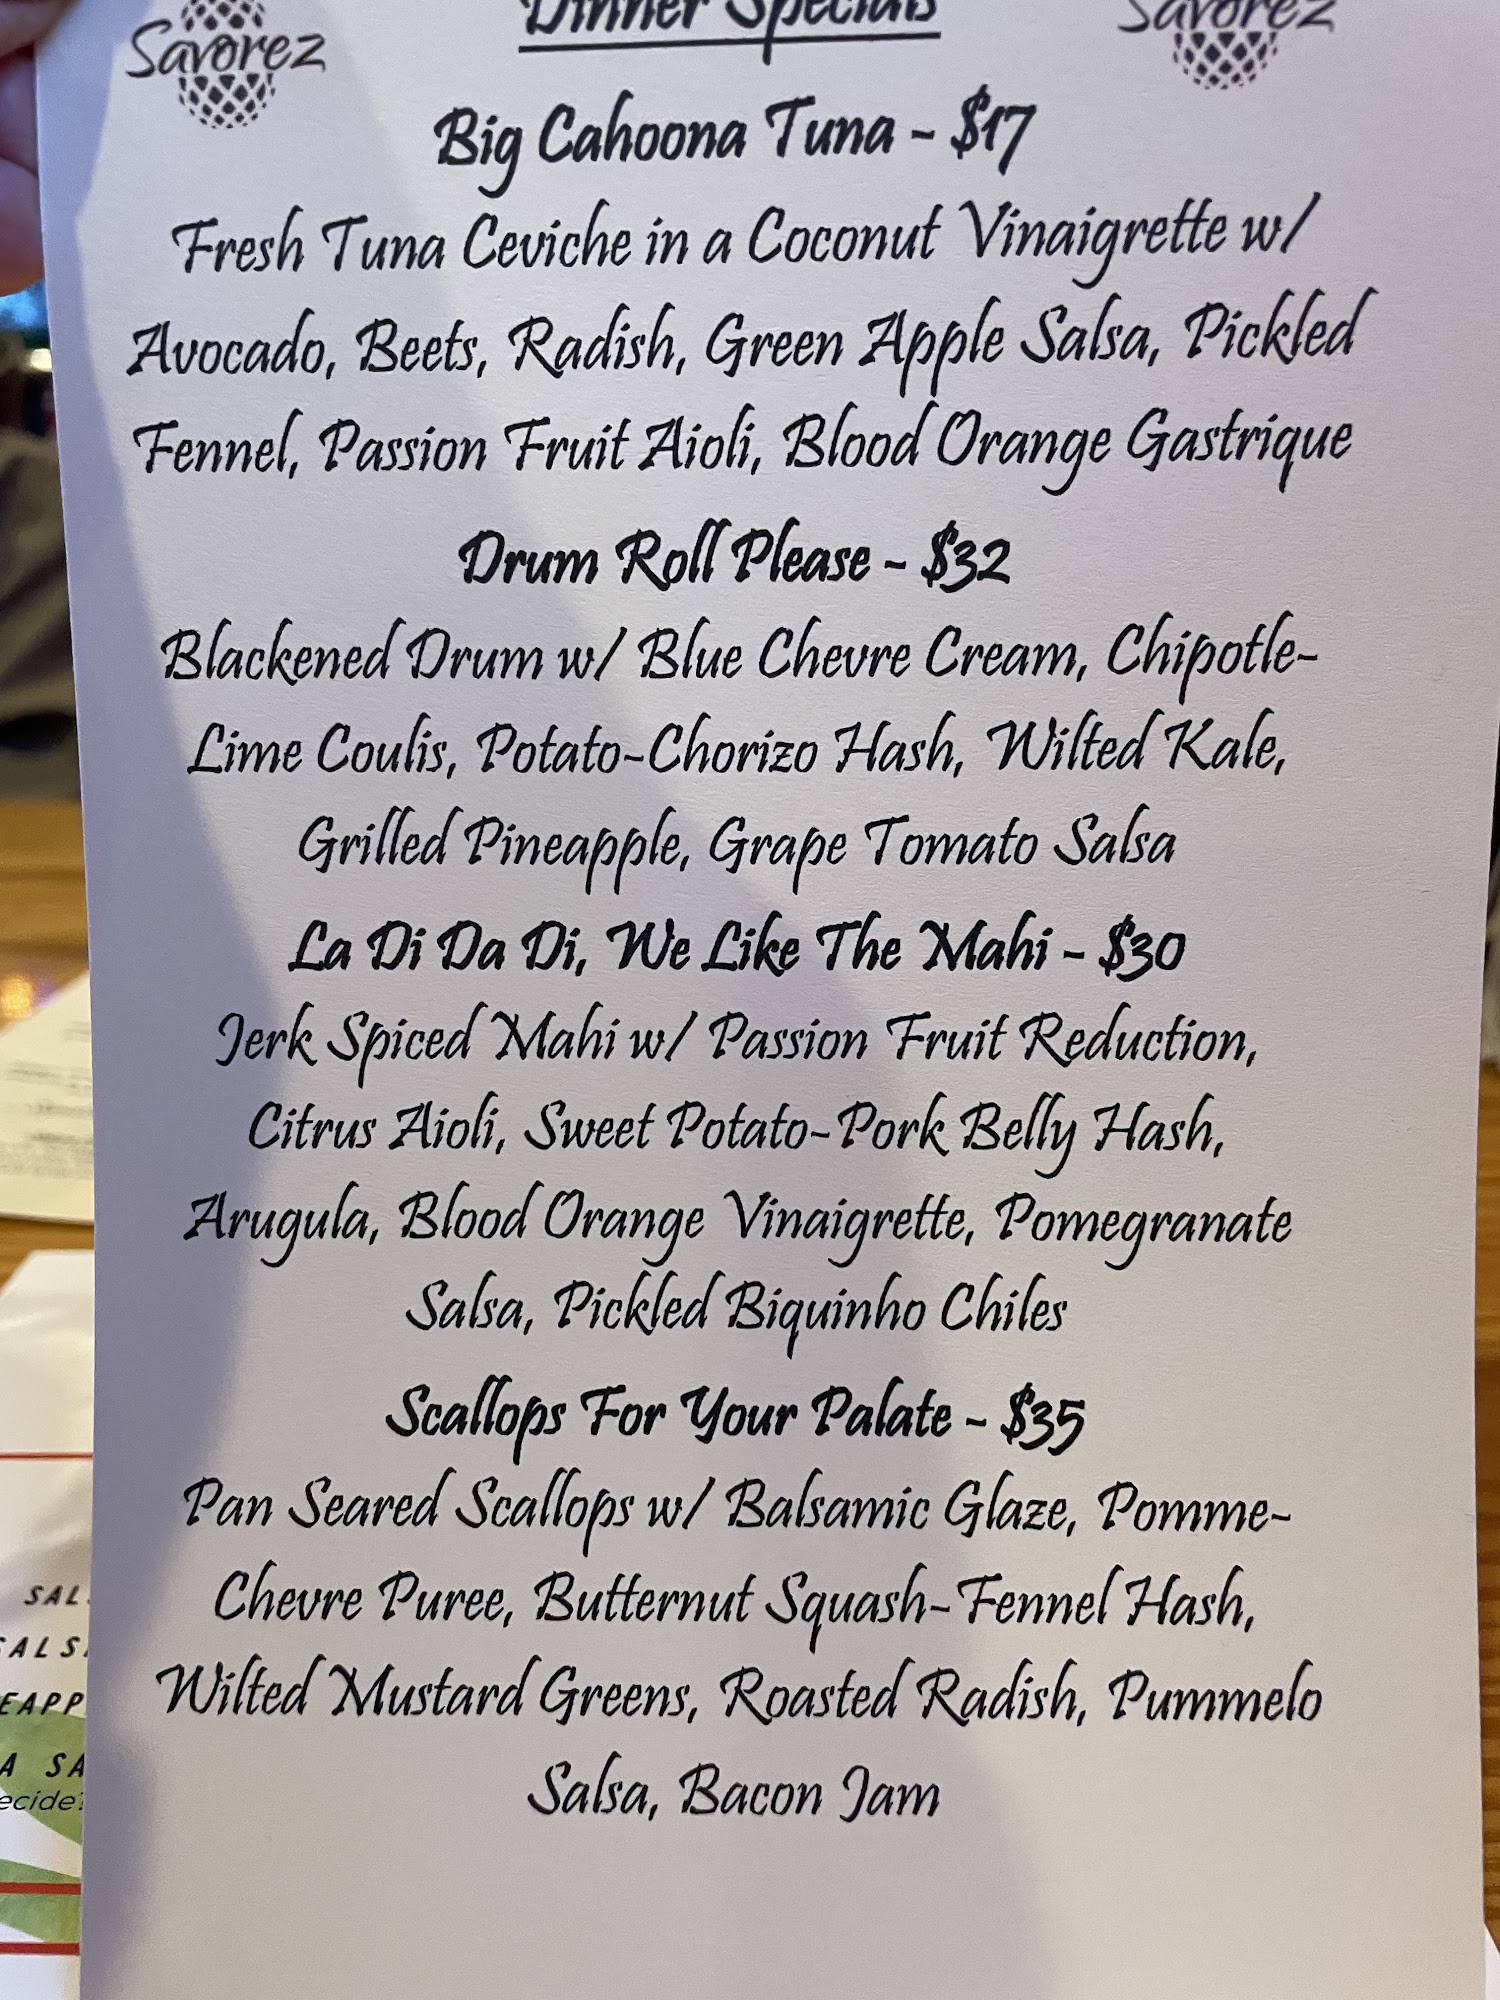 Dinner Specials
Savorez
Savorez
Big Cahoona Tuna - $17
Fresh Tuna Ceviche in a Coconut Vinaigrette w/
Avocado, Beets, Radish, Green Apple Salsa, Pickled
Fennel, Passion Fruit Aioli, Blood Orange Gastrique
Drum Roll Please - $32
Blackened Drum w/ Blue Chevre Cream, Chipotle-
Lime Coulis, Potato-Chorizo Hash, Wilted Kale,
Grilled Pineapple, Grape Tomato Salsa
La Di Da Di, We Like The Mahi - $30
Jerk Spiced Mahi w/ Passion Fruit Reduction,
Citrus Aioli, Sweet Potato-Pork Belly Hash,
Arugula, Blood Orange Vinaigrette, Pomegranate
Salsa, Pickled Biquinho Chiles
Scallops For Your Palate - $35
Pan Seared Scallops w/ Balsamic Glaze, Pomme-
Chevre Puree, Butternut Squash-Fennel Hash,
Wilted Mustard Greens, Roasted Radish, Pummelo
Salsa, Bacon Jam
SAL
SALS
EAPP
A SA
ecide?